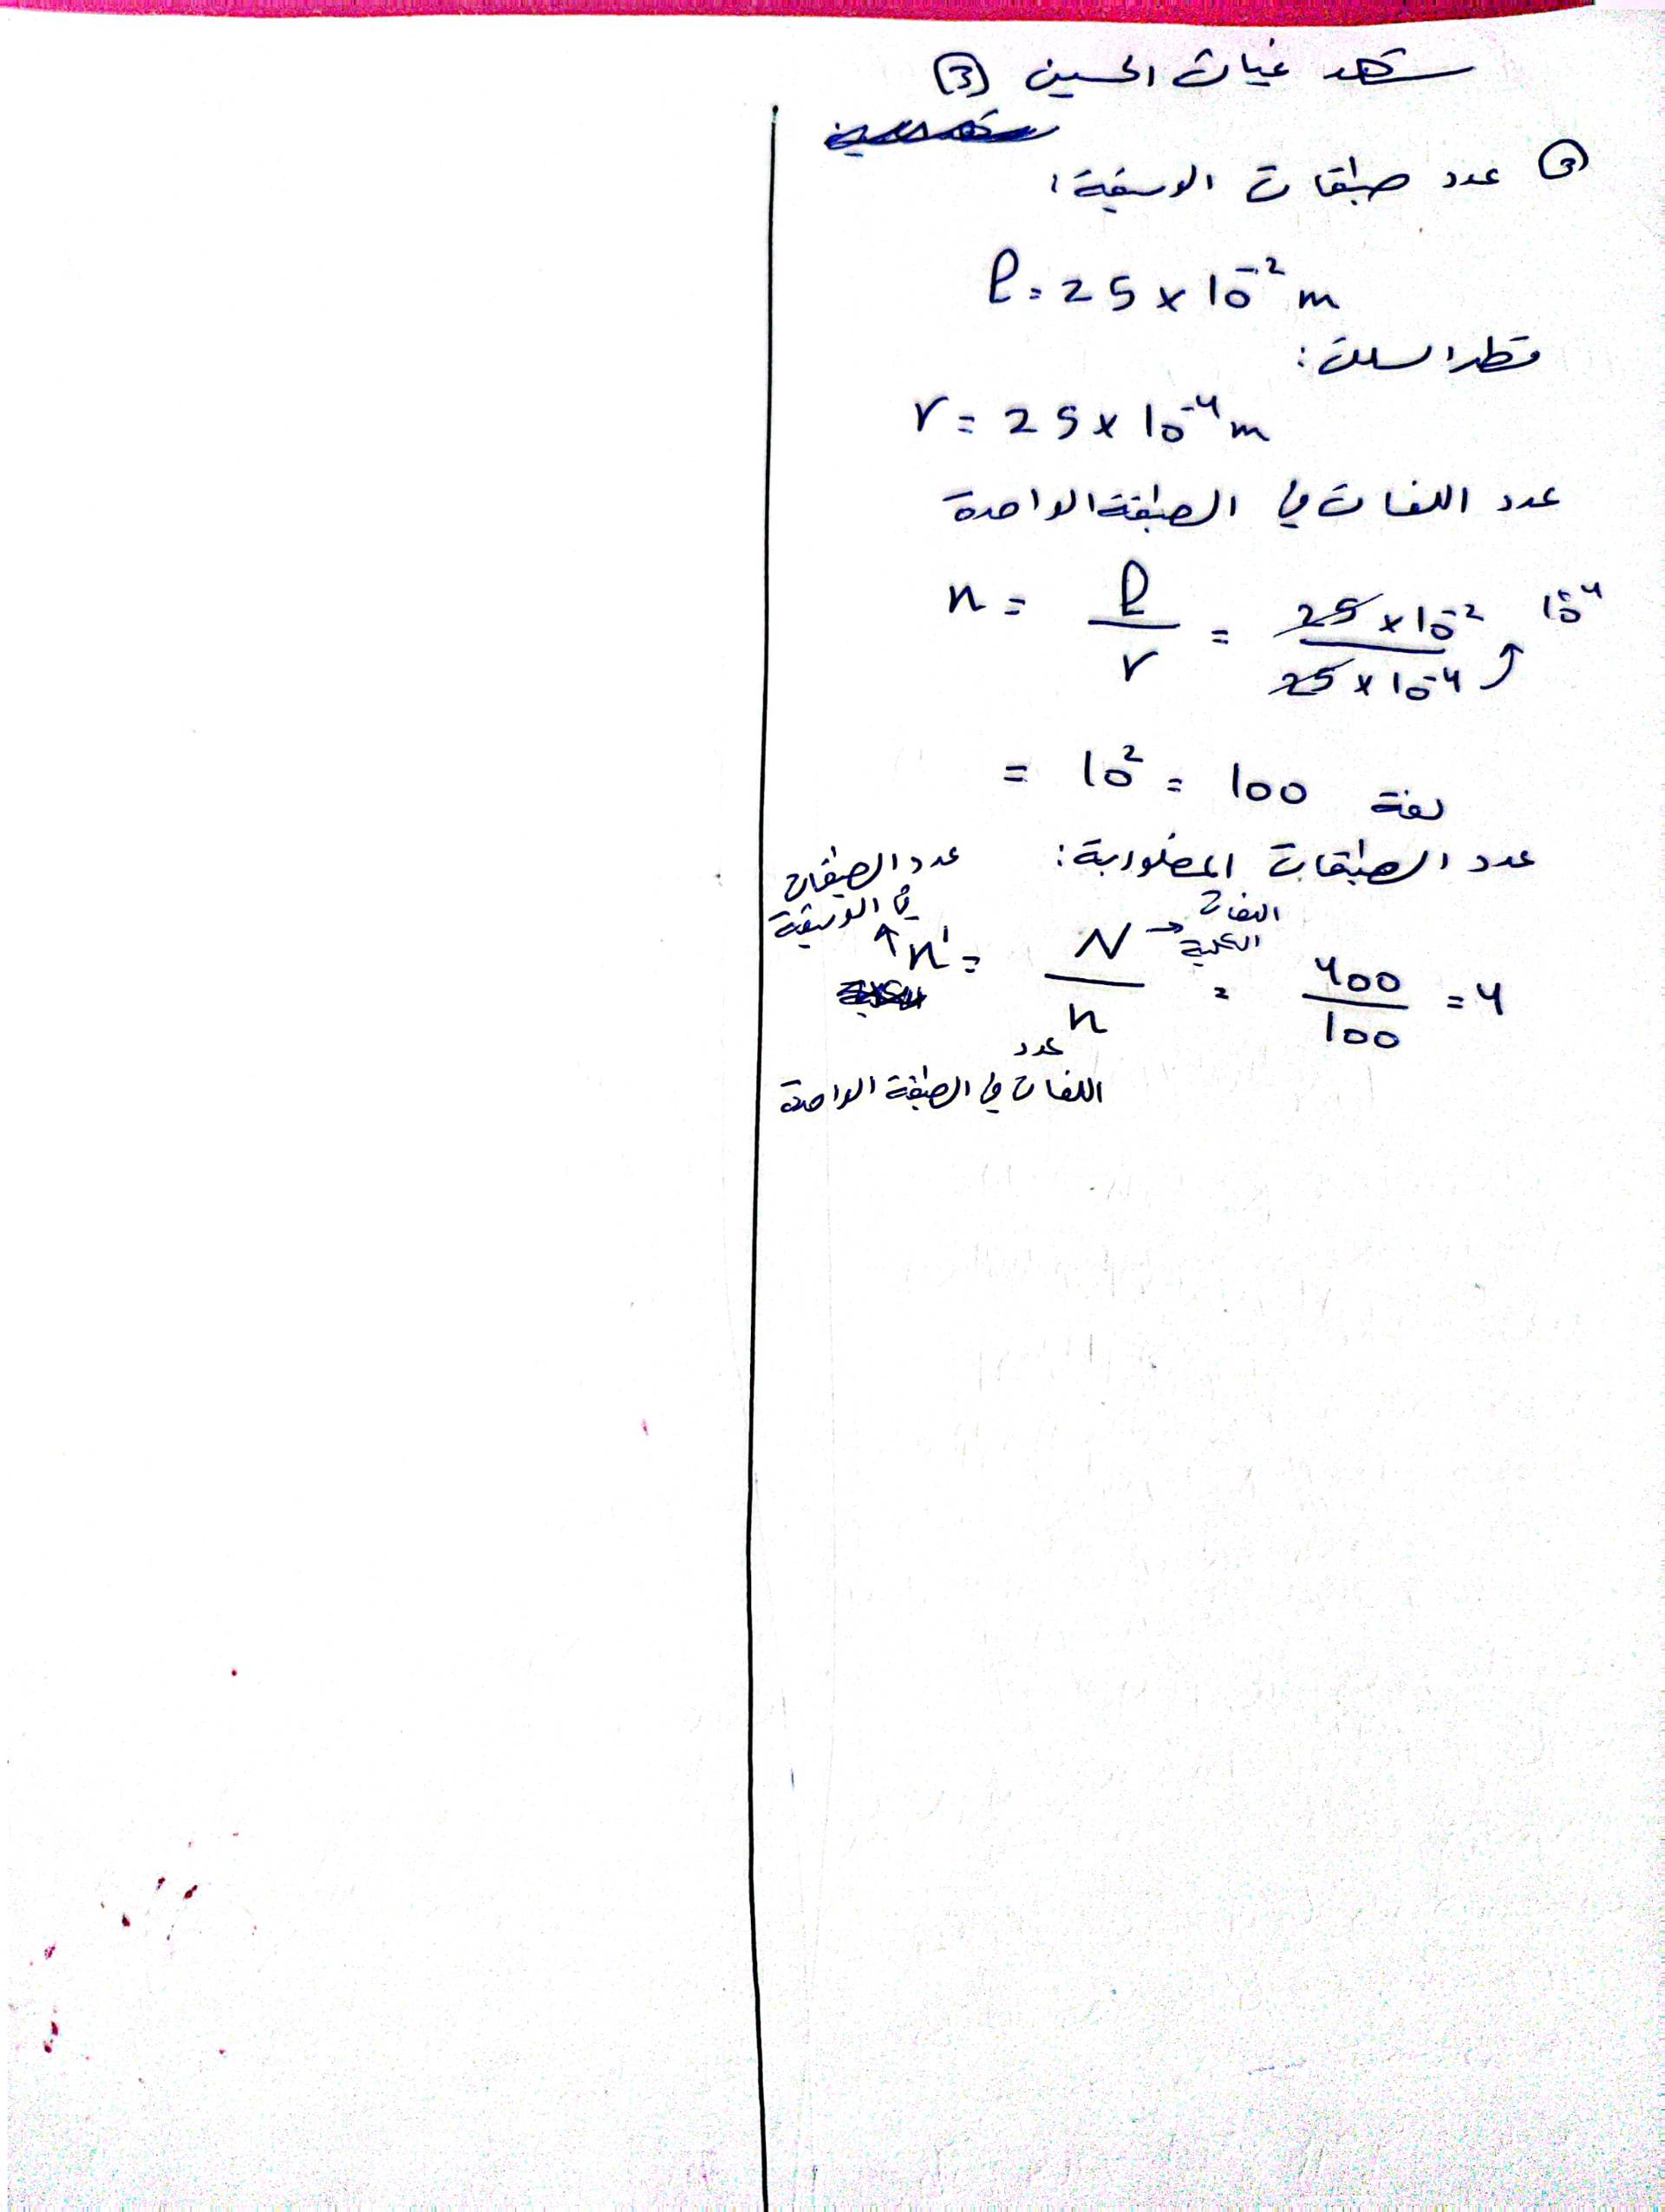 شهد غياث الحسين (3)
(3) عدد طبقات الوشيعة:
l = 25 × 10^-2 m
قطر السلك:
r = 25 × 10^-4 m
عدد اللفات في الطبقة الواحدة
n = l / r = 25 × 10^-2 / 25 × 10^-4
= 10^2 = 100 لفة
عدد الطبقات المطلوبة:
عدد الطبقات
في الوشيعة
n' = N / n = 400 / 100 = 4
اللفات
الكلية
عدد
اللفات في الطبقة الواحدة